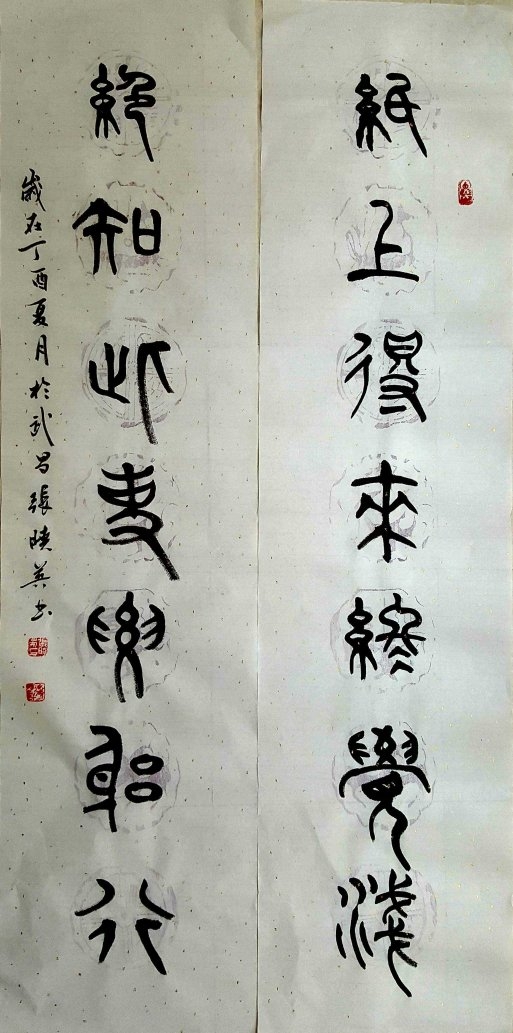 紙上得來終覺淺
絕知此事要躬行
歲在丁酉夏月於武昌張曉英書